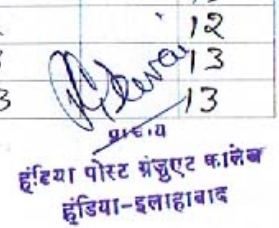 12
13
3 13
प्राचार्य
हंडिया पोस्ट ग्रेजुएट कालेज
हंडिया-इलाहाबाद